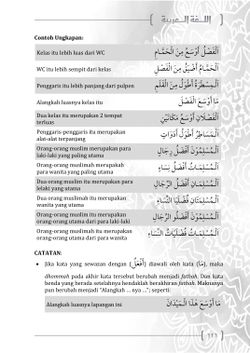 اللـغة الـعربية
Contoh Ungkapan:
Kelas itu lebih luas dari WC اَلْفَصْلُ أَوْسَعُ مِنَ الْحَمَّامِ
WC itu lebih sempit dari kelas اَلْحَمَّامُ أَضْيَقُ مِنَ الْفَصْلِ
Penggaris itu lebih panjang dari pulpen اَلْمِسْطَرَةُ أَطْوَلُ مِنَ الْقَلَمِ
Alangkah luasnya kelas itu مَا أَوْسَعَ الْفَصْلَ
Dua kelas itu merupakan 2 tempat
terluas اَلْفَصْلَانِ أَوْسَعُ مَكَانَيْنِ
Penggaris-penggaris itu merupakan
alat-alat terpanjang اَلْمَسَاطِرُ أَطْوَلُ أَدَوَاتٍ
Orang-orang muslim merupakan para
laki-laki yang paling utama اَلْمُسْلِمُوْنَ أَفْضَلُ رِجَالٍ
Orang-orang muslimah merupakah
para wanita yang paling utama اَلْمُسْلِمَاتُ أَفْضَلُ نِسَاءٍ
Dua orang muslim itu merupakan para
lelaki yang utama اَلْمُسْلِمَانِ أَفْضَلَا الرِّجَالِ
Dua orang muslimah itu merupakan
wanita yang utama اَلْمُسْلِمَتَانِ فُضْلَيَا النِّسَاءِ
Orang-orang muslim itu merupakan
orang-orang utama dari para laki-laki اَلْمُسْلِمُوْنَ أَفْضَلُو الرِّجَالِ
Orang-orang muslimah itu merupakan
orang-orang utama dari para wanita اَلْمُسْلِمَاتُ فُضْلَيَاتُ النِّسَاءِ
CATATAN:
• Jika kata yang sewazan dengan (أَفْعَلُ) diawali oleh kata (مَا), maka
dhommah pada akhir kata tersebut berubah menjadi fathah. Dan kata
benda yang berada setelahnya hendaklah berakhiran fathah. Maknanya
pun berubah menjadi "Alangkah ... nya ..."; seperti:
Alangkah luasnya lapangan ini مَا أَوْسَعَ هٰذَا الْمَيْدَانَ